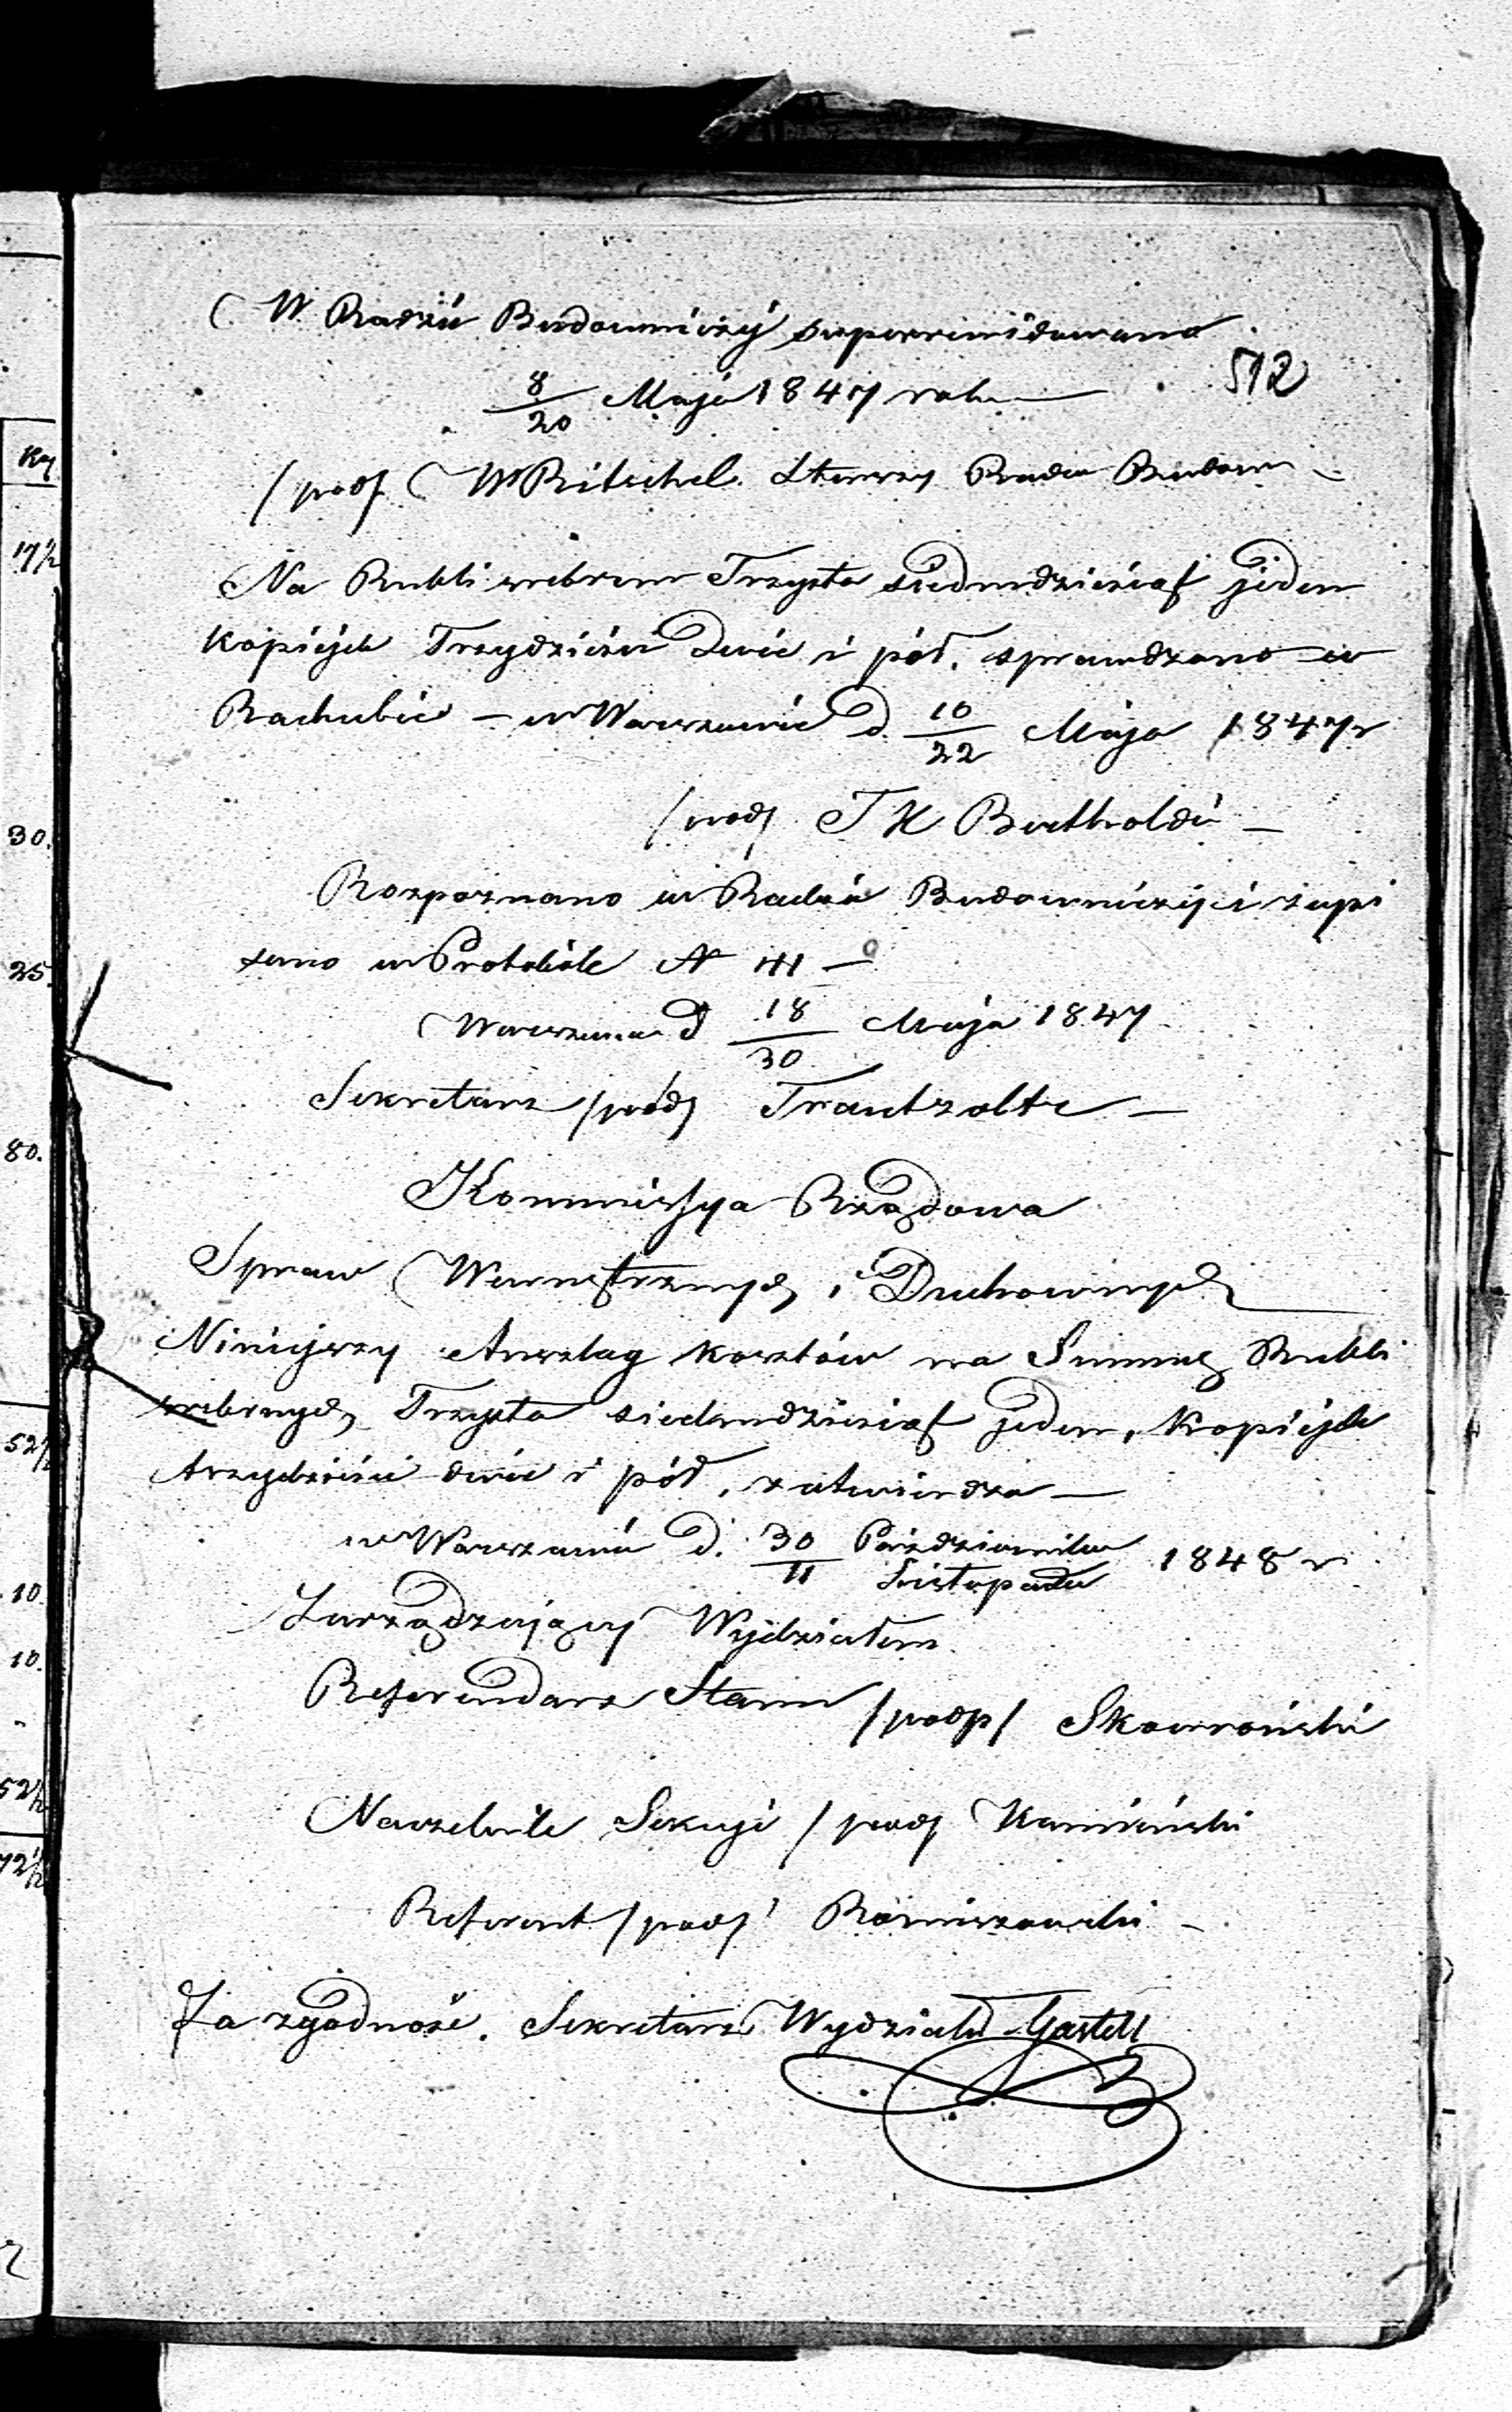 W Radzie Budowniczéj superrewidowano
512
8/20 Maja 1847 roku
/podp W Ritschel Starszy Radca Budow
Na Rubli srebrem Trzysta siedmdziesiąt jeden
kopiejek Trzydzieści dwie i pół, sprawdzono w
Rachubie – w Warszawie d. 10/22 Maja 1847 r
/podp T H Bertholdi –
Rozpoznano w Radzie Budowniczéj i zapi
sano w Protokóle N 41 –
Warszawa d 18/30 Maja 1847
Sekretarz /podp Trautzolt –
Kommissya Rządowa
Spraw Wewnętrznych i Duchownych
Niniejszy Anszlag kosztów na Summę Rubli
srebrnych Trzysta siedmdziesiąt jeden, kopiejek
trzydzieści dwie i pół, zatwierdza –
w Warszawie d. 30/11 Październiku/Listopada 1848 r
Zarządzający Wydziałem
Referendarz Stanu /podp/ Skowroński
Naczelnik Sekcyi /podp Kamiński
Referent /podp/ Romiszewski –
Za zgodność. Sekretarz Wydziału Gartell
Ky
17½
30.
25.
80.
52½
10.
10.
52½
72½